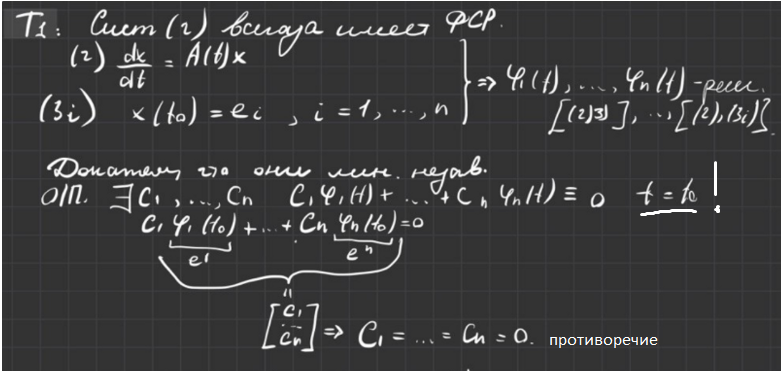 T1: Сист (2) всегда имеет ФСР.
(2) dx/dt = A(t)x
(3i) x(t₀) = eᵢ , i = 1, ..., n } ⇒ φ₁(t), ..., φₙ(t) - реш. [(2)3)], ..., [(2), (3i)].
Докажем, что они лин. незав.
О/П. ∃ C₁, ..., Cₙ C₁ φ₁(t) + ... + Cₙ φₙ(t) ≡ 0 t = t₀ !
C₁ φ₁(t₀) + ... + Cₙ φₙ(t₀) = 0
e¹ eⁿ
"
[C₁ ... Cₙ] ⇒ C₁ = ... = Cₙ = 0. противоречие